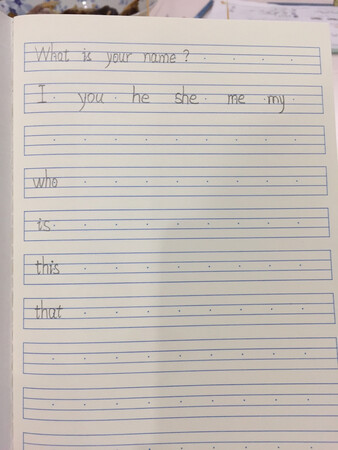 What is your name?
I you he she me my
who
is
this
that